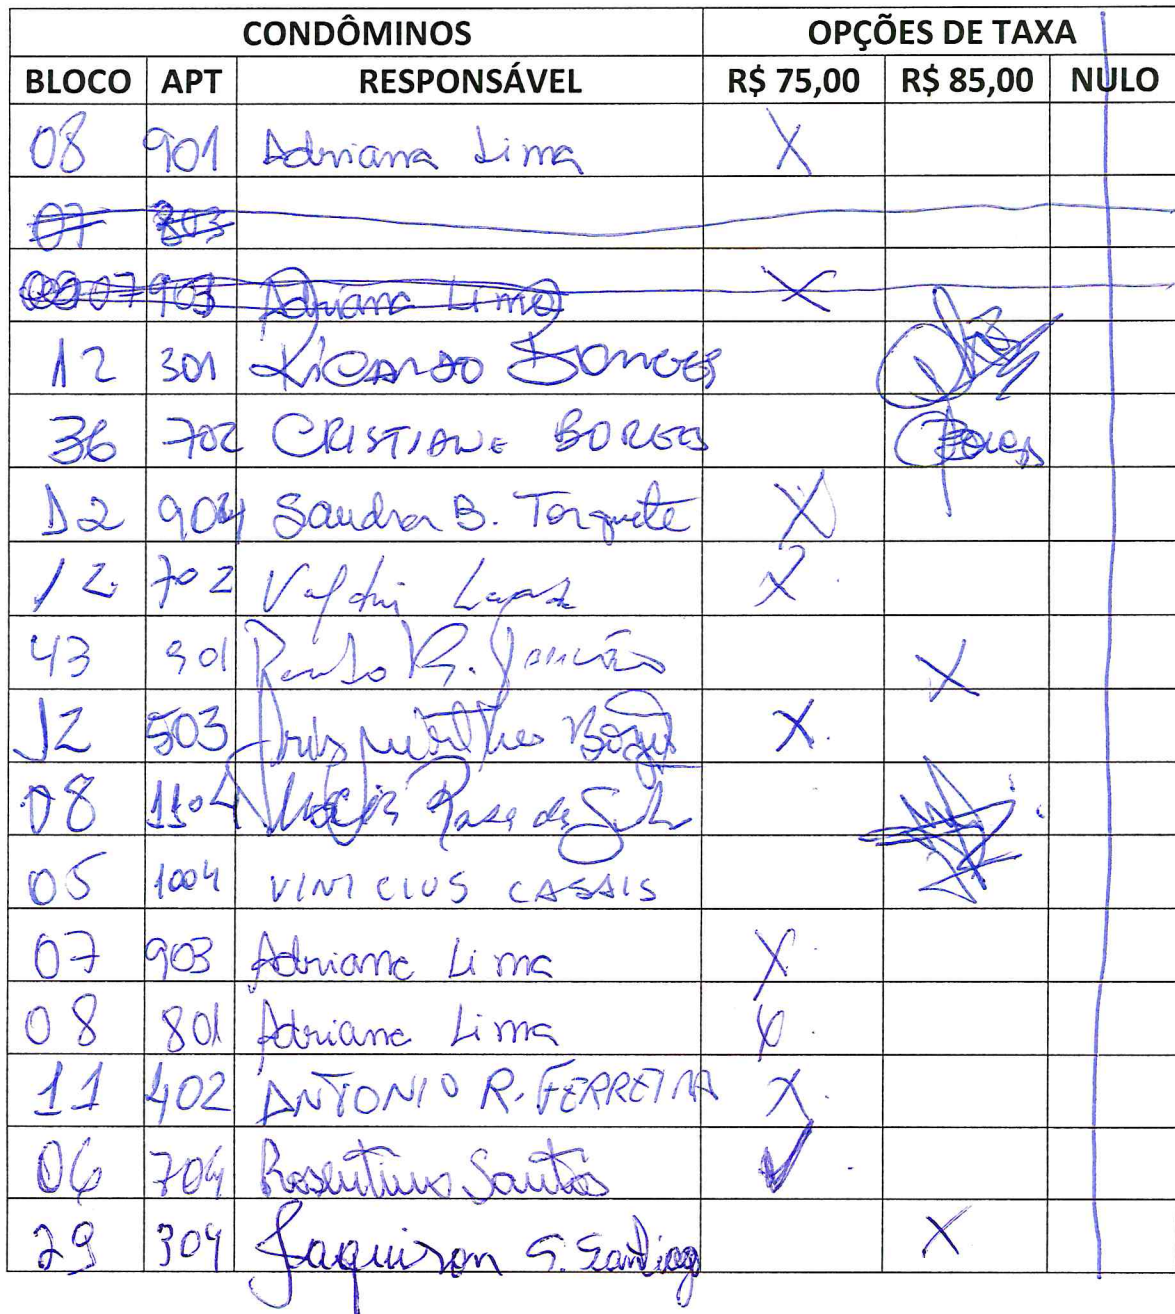 CONDÔMINOS OPÇÕES DE TAXA
BLOCO APT RESPONSÁVEL R$ 75,00 R$ 85,00 NULO
08 901 Adriana Lima X
07 803
07 903 Adriana Lima X
12 301 RICARDO BORGES
36 702 CRISTIANE BORGES Borges
12 904 Sandra B. Torquete X
12 702 X
43 901 X
12 503 X
08 1104 Rosa da Silva
05 1004 VINICIUS CASAIS
07 903 Adriana Lima X
08 801 Adriana Lima X
11 402 ANTONIO R. FERREIRA X
06 704 Rosentino Santos ✓
29 304 Jaquison S. Santiago X